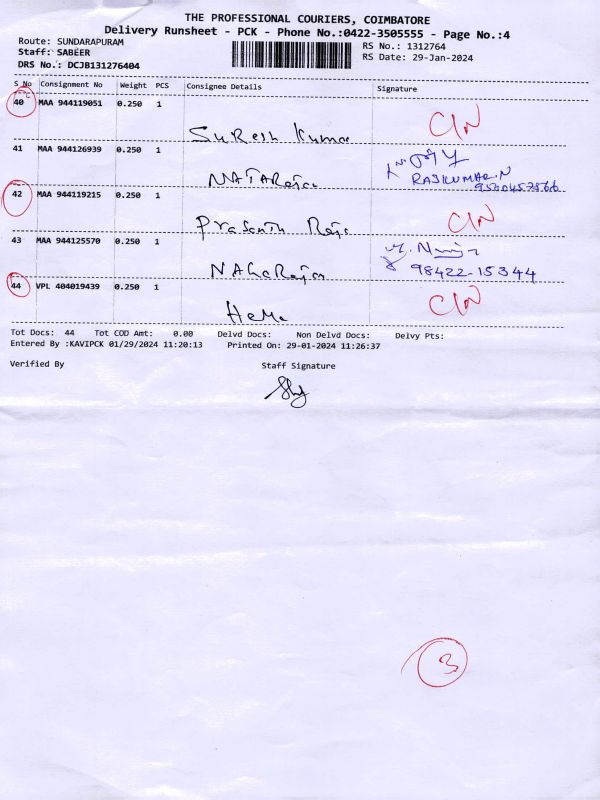 THE PROFESSIONAL COURIERS, COIMBATORE
Delivery Runsheet - PCK - Phone No.:0422-3505555 - Page No.:4
Route: SUNDARAPURAM
Staff: SABEER
DRS No.: DCJB131276404
RS No.: 1312764
RS Date: 29-Jan-2024
S No Consignment No Weight PCS Consignee Details Signature
40 MAA 944119051 0.250 1
Suresh Kumar CIN
41 MAA 944126939 0.250 1
NATARajan RAJKUMAR.N
42 MAA 944119215 0.250 1
Prasanth Raja CIN
43 MAA 944125570 0.250 1
NAGaRajan 98422-15344
44 VPL 404019439 0.250 1
HeMa CIN
Tot Docs: 44 Tot COD Amt: 0.00 Delvd Docs: Non Delvd Docs: Delvy Pts:
Entered By :KAVIPCK 01/29/2024 11:20:13 Printed On: 29-01-2024 11:26:37
Verified By Staff Signature
3